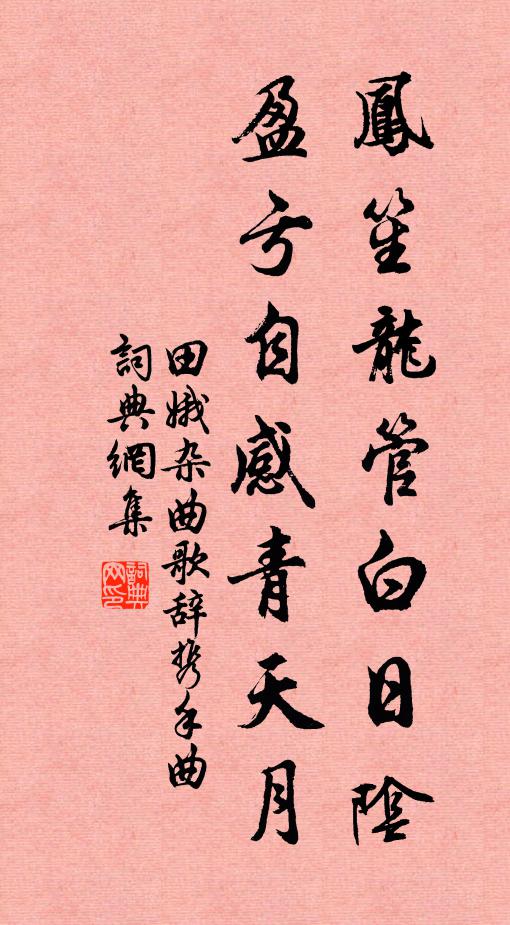 鳳笙龍管白日陰
盈亏自感青天月
田娥杂曲歌辞携手曲
詞典網集
詞典网印